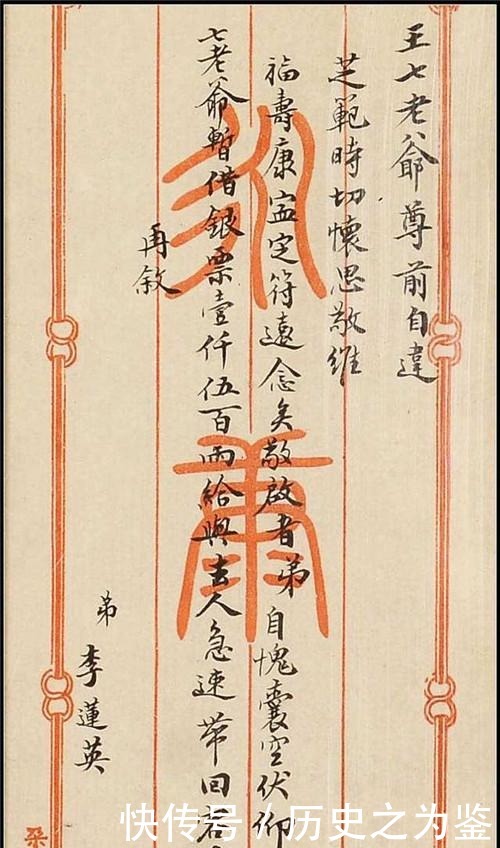 王七老爺尊前自違
芝範時切懷思敬維
福壽康寍定符遠念矣敬啟者弟自愧囊空伏仰
七老爺暫借銀票壹仟伍百兩給與去人急速帶回
再敘
弟
李蓮英
快传号/历史之为鉴